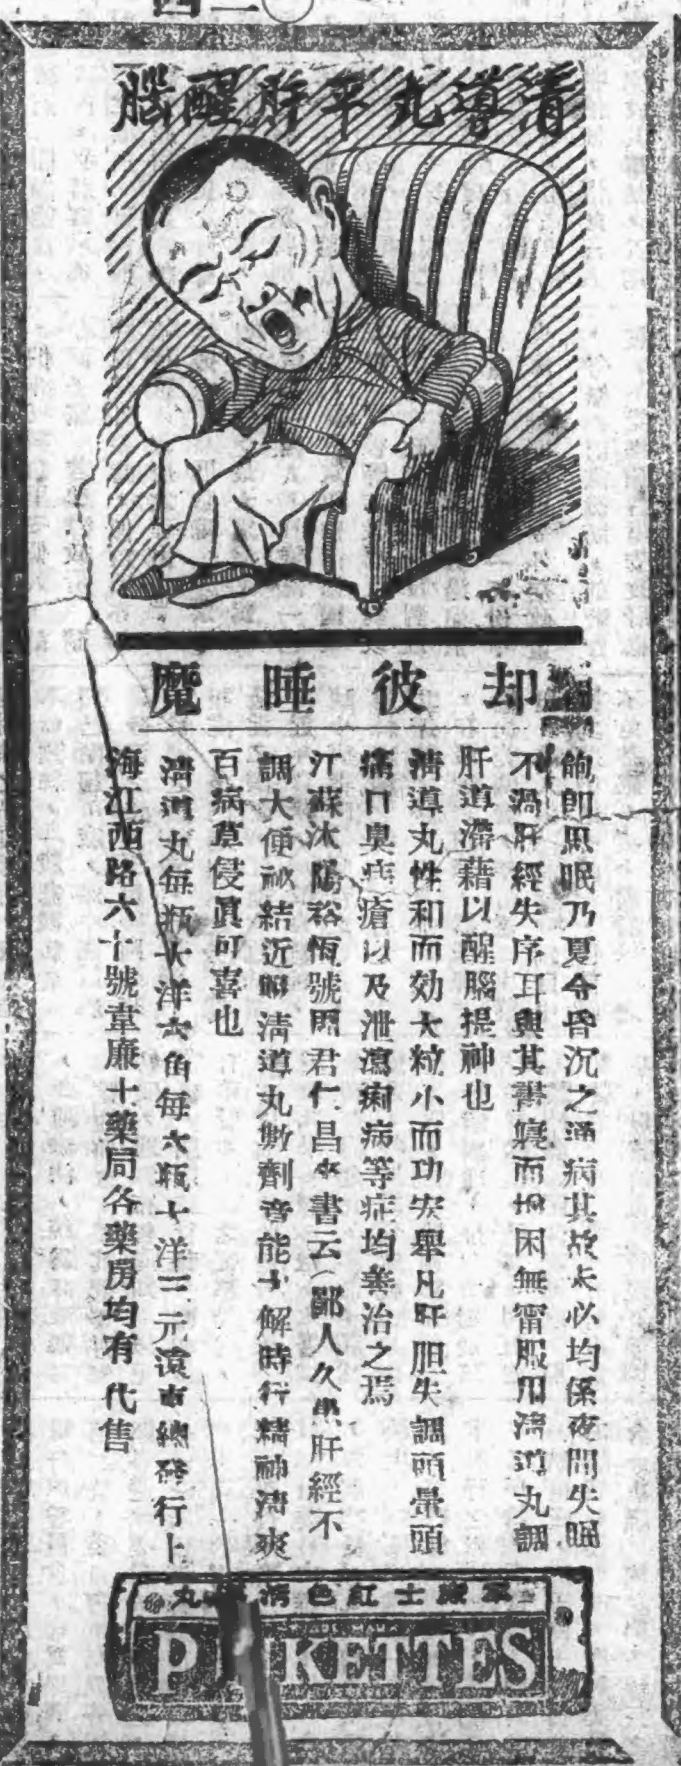 四二〇
清導丸平肝醒腦
却彼睡魔
飽即思眠乃夏令昏沉之通病其故未必均係夜間失眠
不過肝經失序耳與其晝寢而增困無寧服用清導丸調
肝導滯藉以醒腦提神也
清導丸性和而効大粒小而功宏舉凡肝胆失調頭暈頭
痛口臭痔瘡以及泄瀉痢病等症均善治之焉
江蘇沭陽裕恆號周君仁昌來書云(鄙人久患肝經不
調大便祕結近服清導丸數劑竟能大解時行精神清爽
百病莫侵眞可喜也
清導丸每瓶大洋六角每六瓶大洋三元遠東總發行上
海江西路六十號韋廉士藥局各藥房均有代售
韋廉士紅色清導丸
PINKETTES